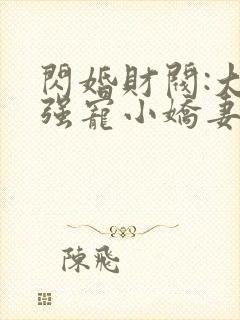 閃婚財閥:大
强寵小嬌妻
陳飛